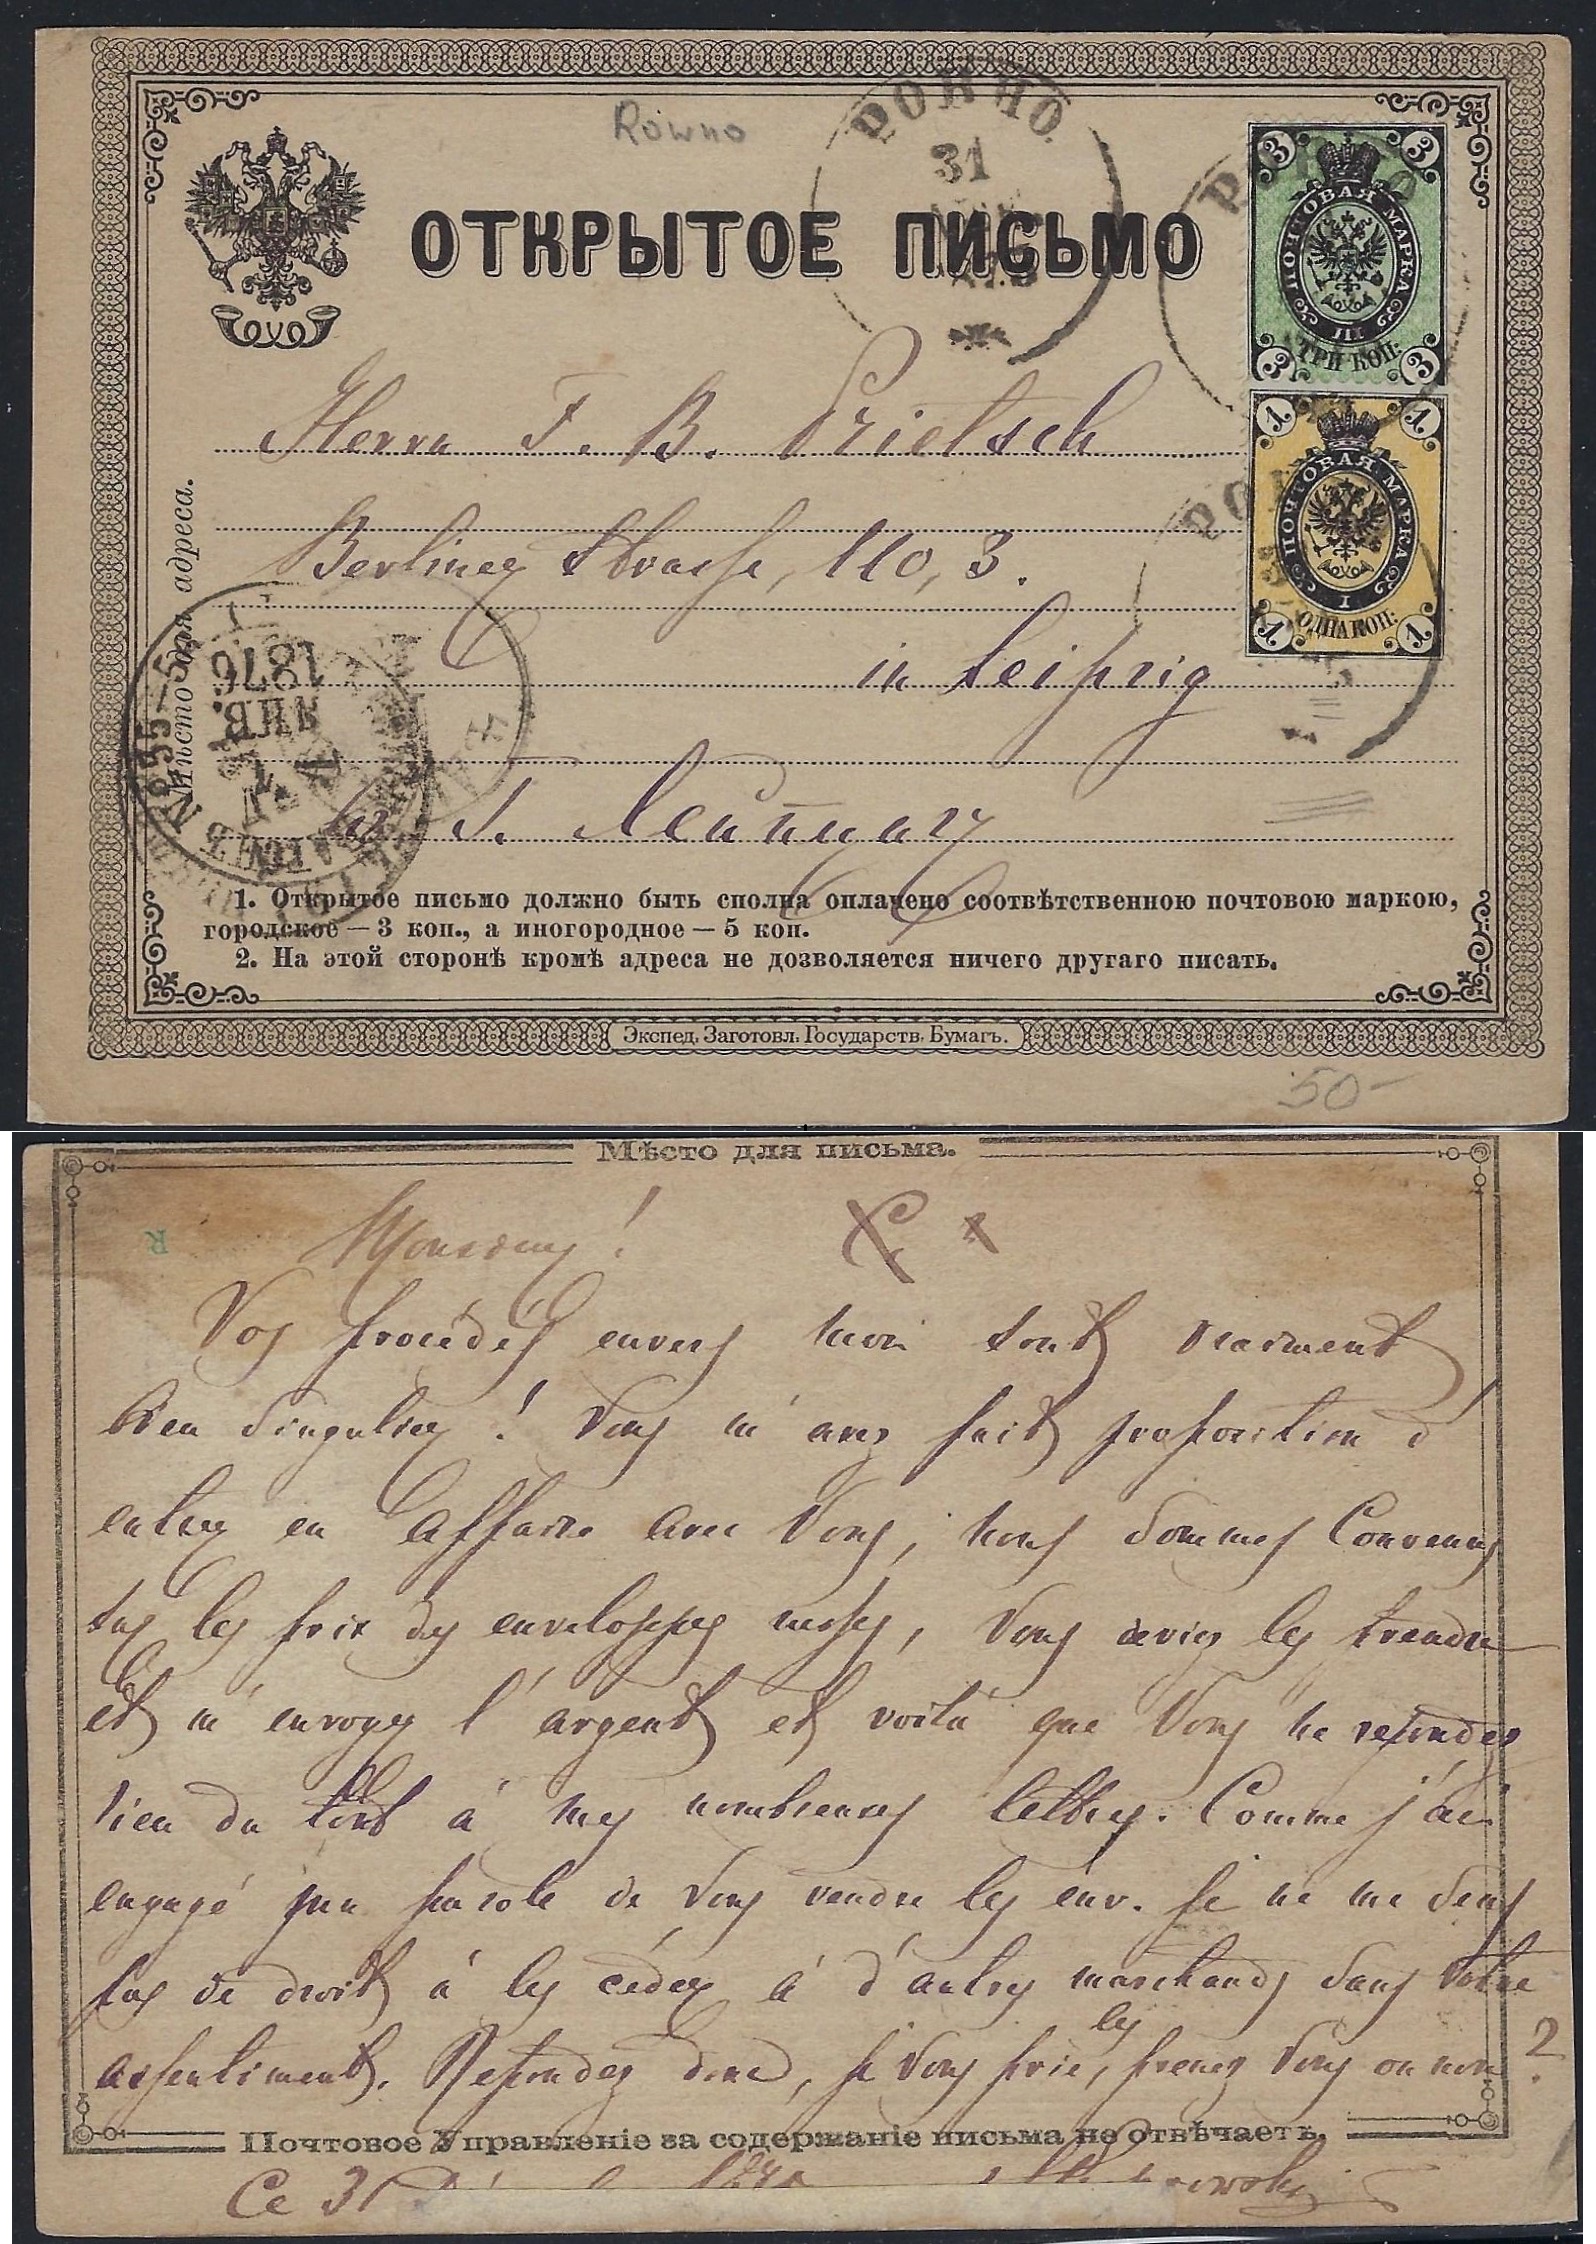 Rowno
РОВНО
31
ОТКРЫТОЕ ПИСЬМО
3 3
ПОЧТОВАЯ МАРКА
III
ТРИ КОП:
3 3
1 1
ПОЧТОВАЯ МАРКА
I
ОДНА КОП:
1 1
Мѣсто для адреса.
Herrn F. B.
Berliner Strasse, 110, 3.
in Leipzig
1876
ЯНВ.
2
1. Открытое письмо должно быть сполна оплачено соотвѣтственною почтовою маркою,
городское — 3 коп., а иногородное — 5 коп.
2. На этой сторонѣ кромѣ адреса не дозволяется ничего другаго писать.
Экспед. Заготовл. Государств. Бумагъ.
50-
Мѣсто для письма.
R
Monsieur!
Vos procédés envers moi sont vraiment
bien singulier! Vous m'avez fait proposition d'
entrer en affaire avec Vous, nous sommes convenus
les prix des enveloppes, Vous deviez les prendre
et m'envoyer l'argent et voilà que Vous ne repondez
rien du tout à mes nombreuses lettres. Comme j'ai
engagé ma parole de Vous vendre les env. je ne me sens
pas de droit à les céder à d'autres marchands sans Votre
assentiment. Repondez donc, je Vous prie, les prenez Vous ou non?
Почтовое Управленіе за содержаніе письма не отвѣчаетъ.
Ce 31